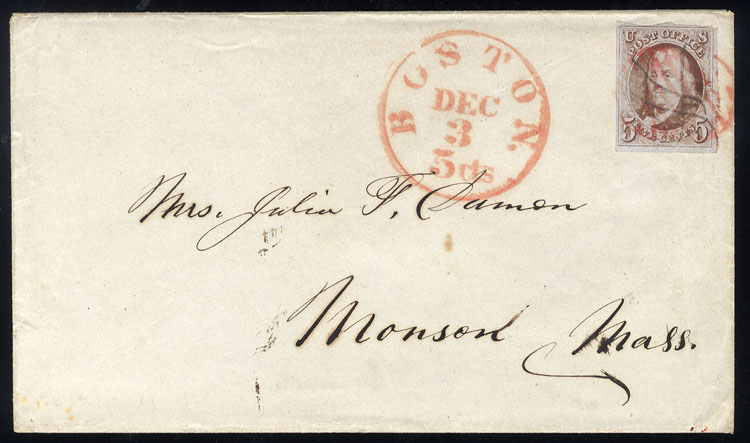 BOSTON.
DEC
3
5 cts
U S
POST OFFICE
5 FIVE CENTS 5
Mrs. Julia F. Damon
Monson Mass.